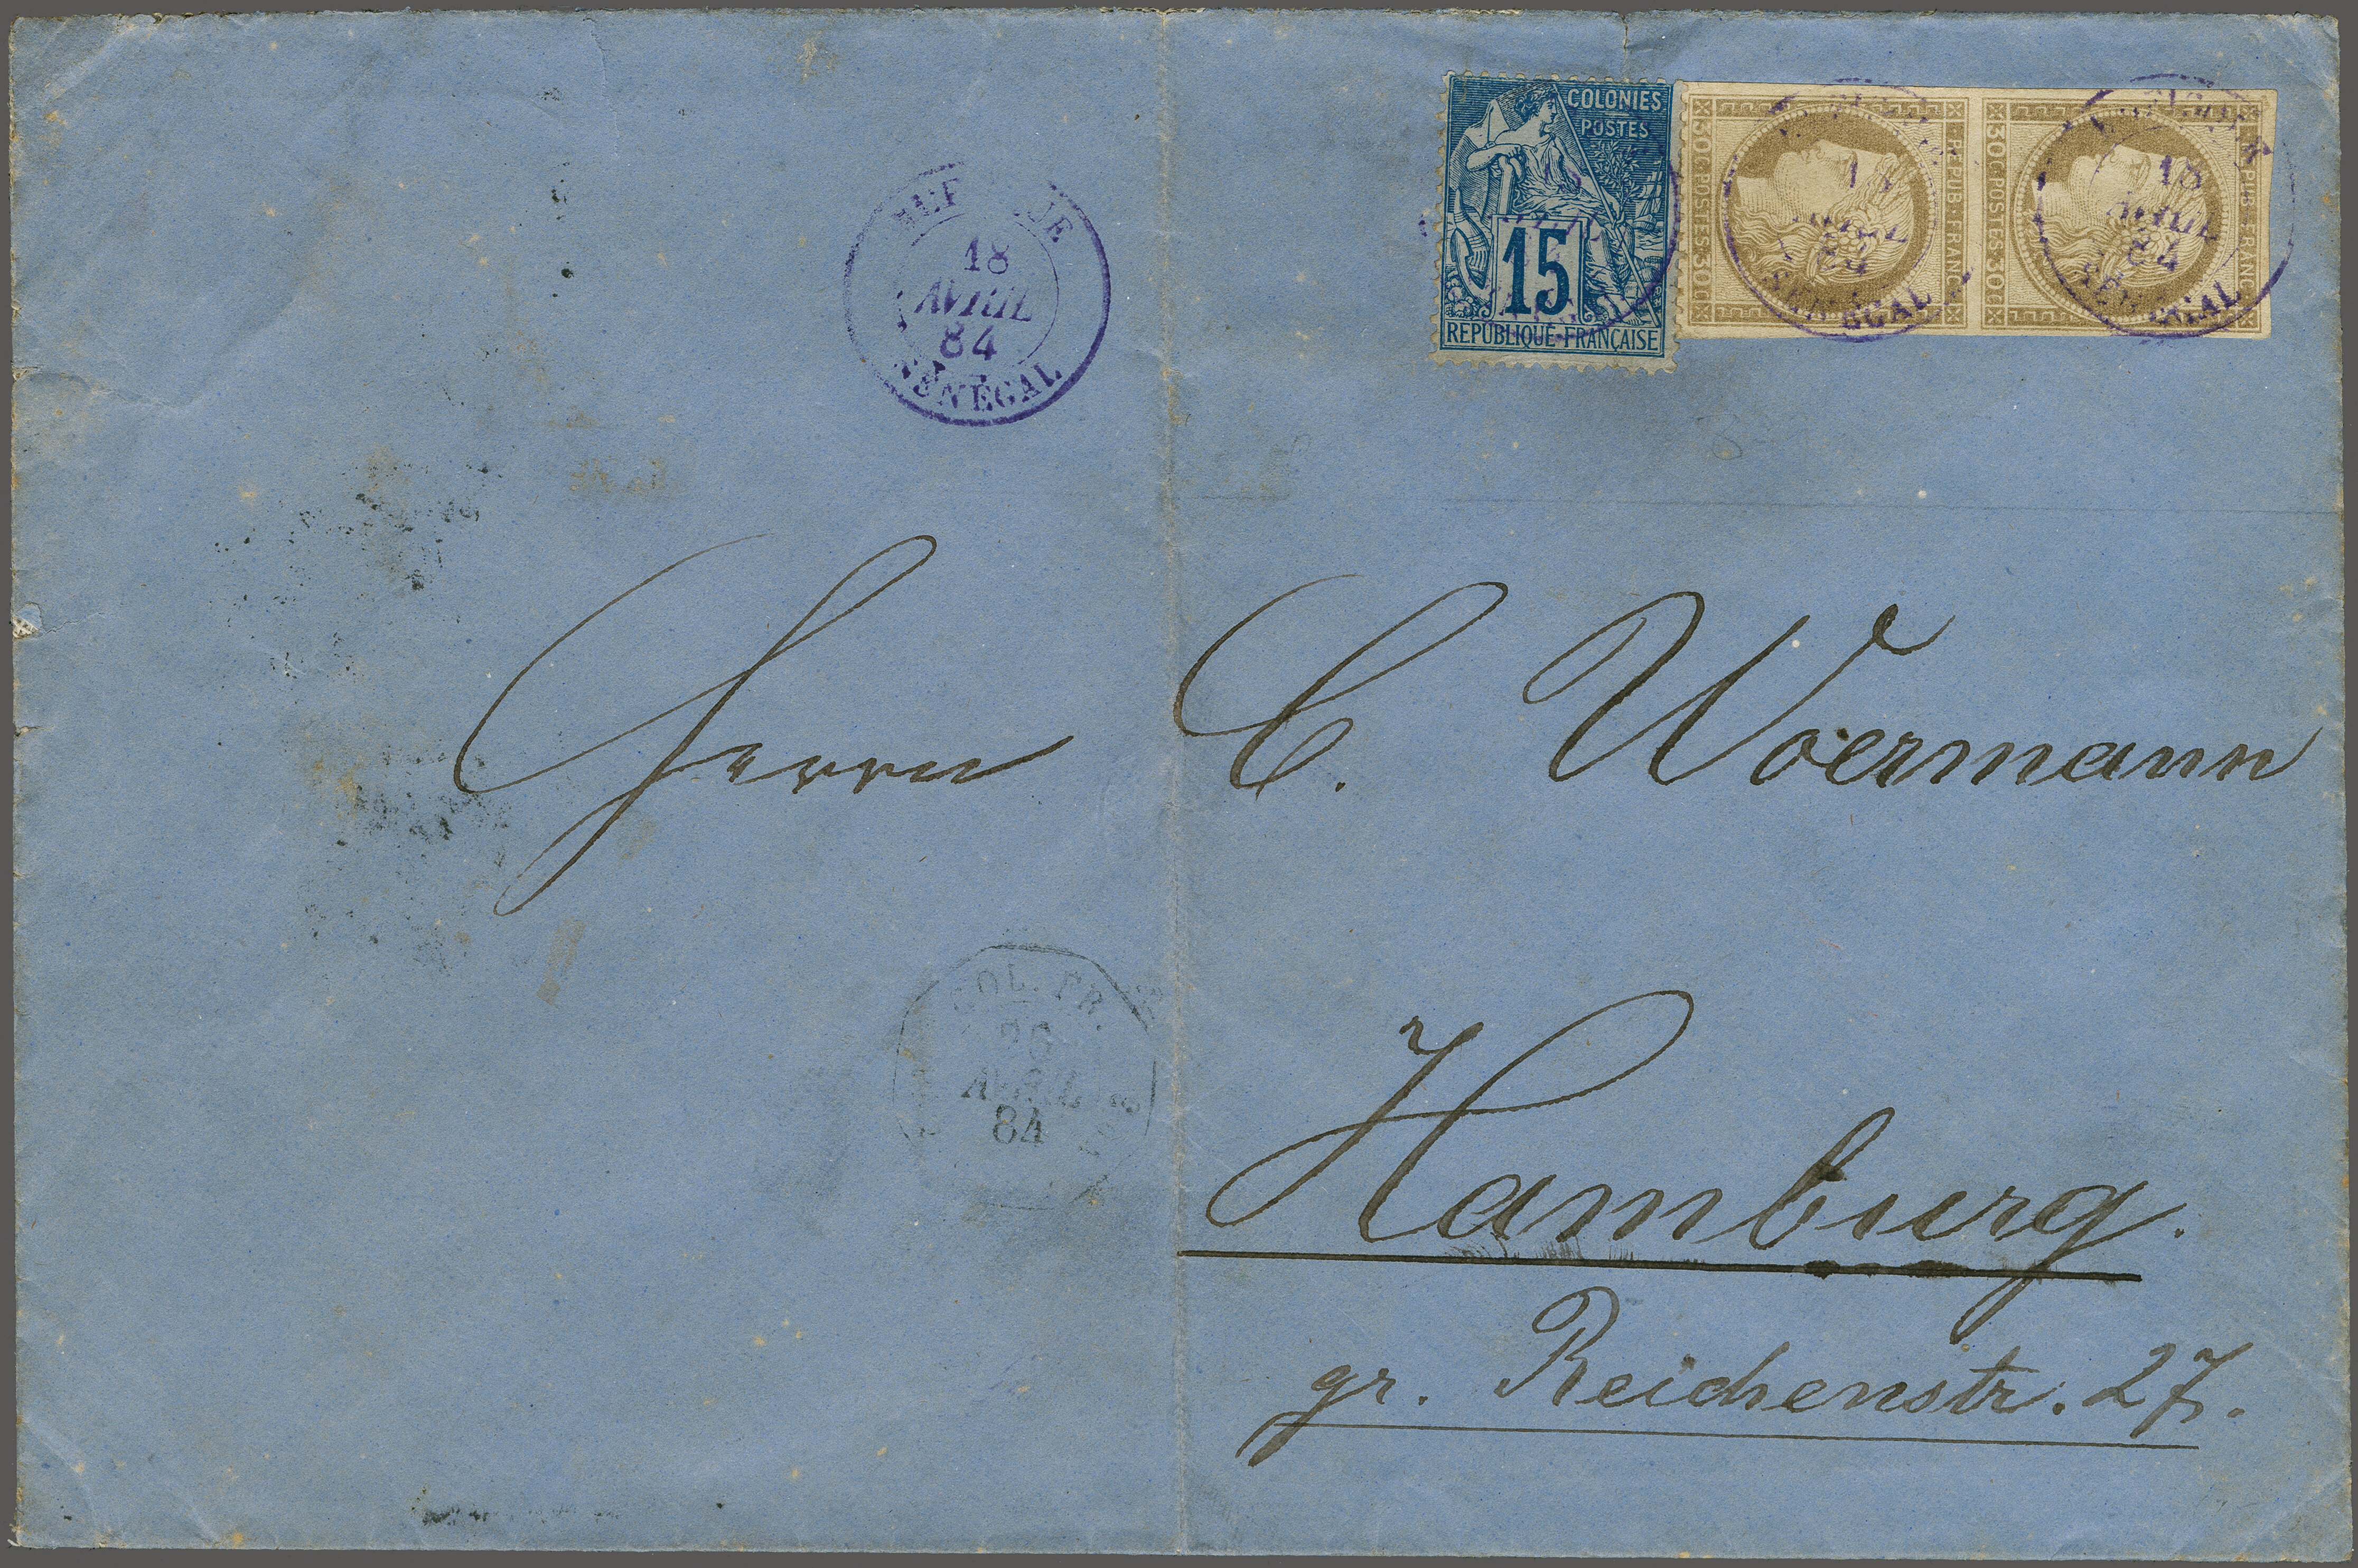 COLONIES
POSTES
15
REPUBLIQUE FRANÇAISE
30C · POSTES · 30C
REPUB · FRANC
30C · POSTES · 30C
REPUB · FRANC
18
AVRIL
84
SENEGAL
18
AVRIL
84
SÉNÉGAL
18
AVRIL
84
SENEGAL
Herrn C. Woermann
COL. FR.
AVRIL
84
Hamburg.
gr. Reichenstr. 27.